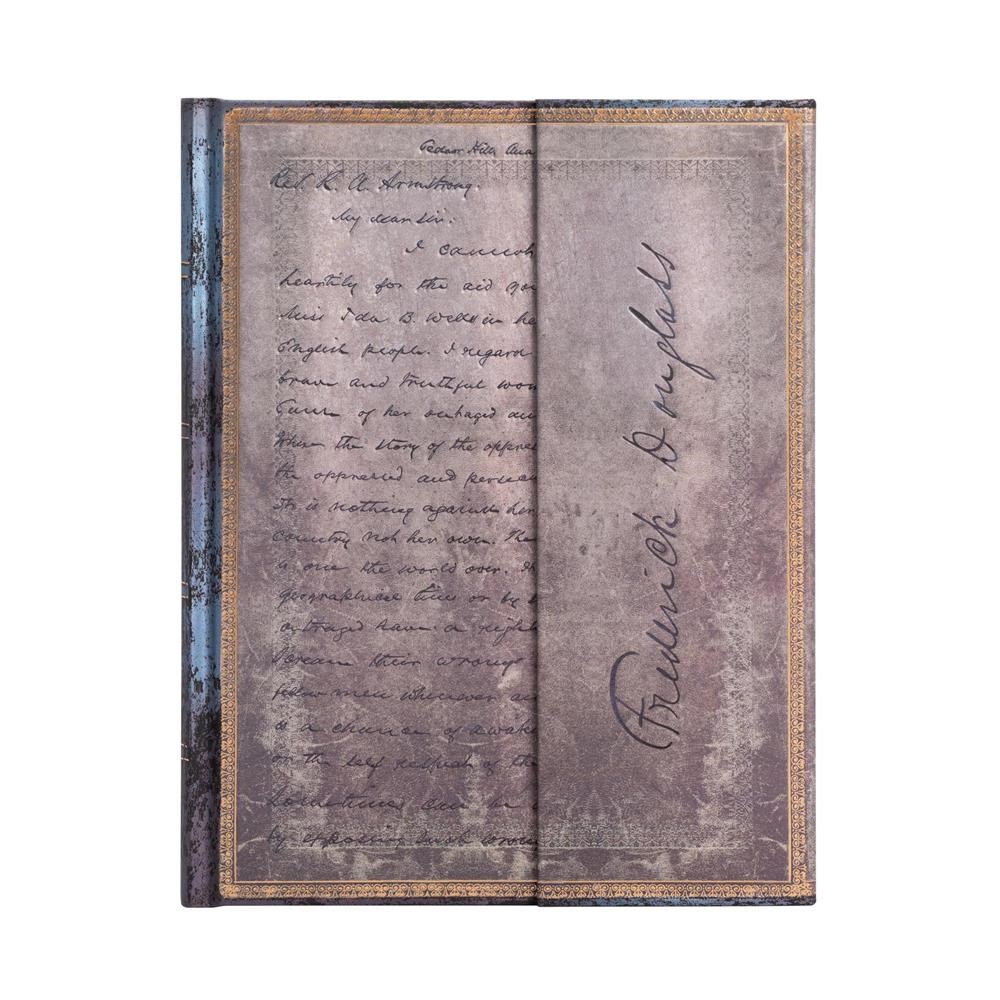 Cedar Hill, Ana
Rev. R. A. Armstrong.
My dear Sir:
I cannot
heartily for the aid you
Miss Ida B. Wells in he
English people. I regard
brave and truthful wom
Cause of her outraged an
When the story of the oppres
the oppressed and persec
It is nothing against her
country not her own. The
is one the world over.
geographical lines or by
outraged have a right
scream their wrongs
fellow men wherever an
is a chance of awake
on the self respect of the
Something can be
by opposing such wrong
Frederick Douglass